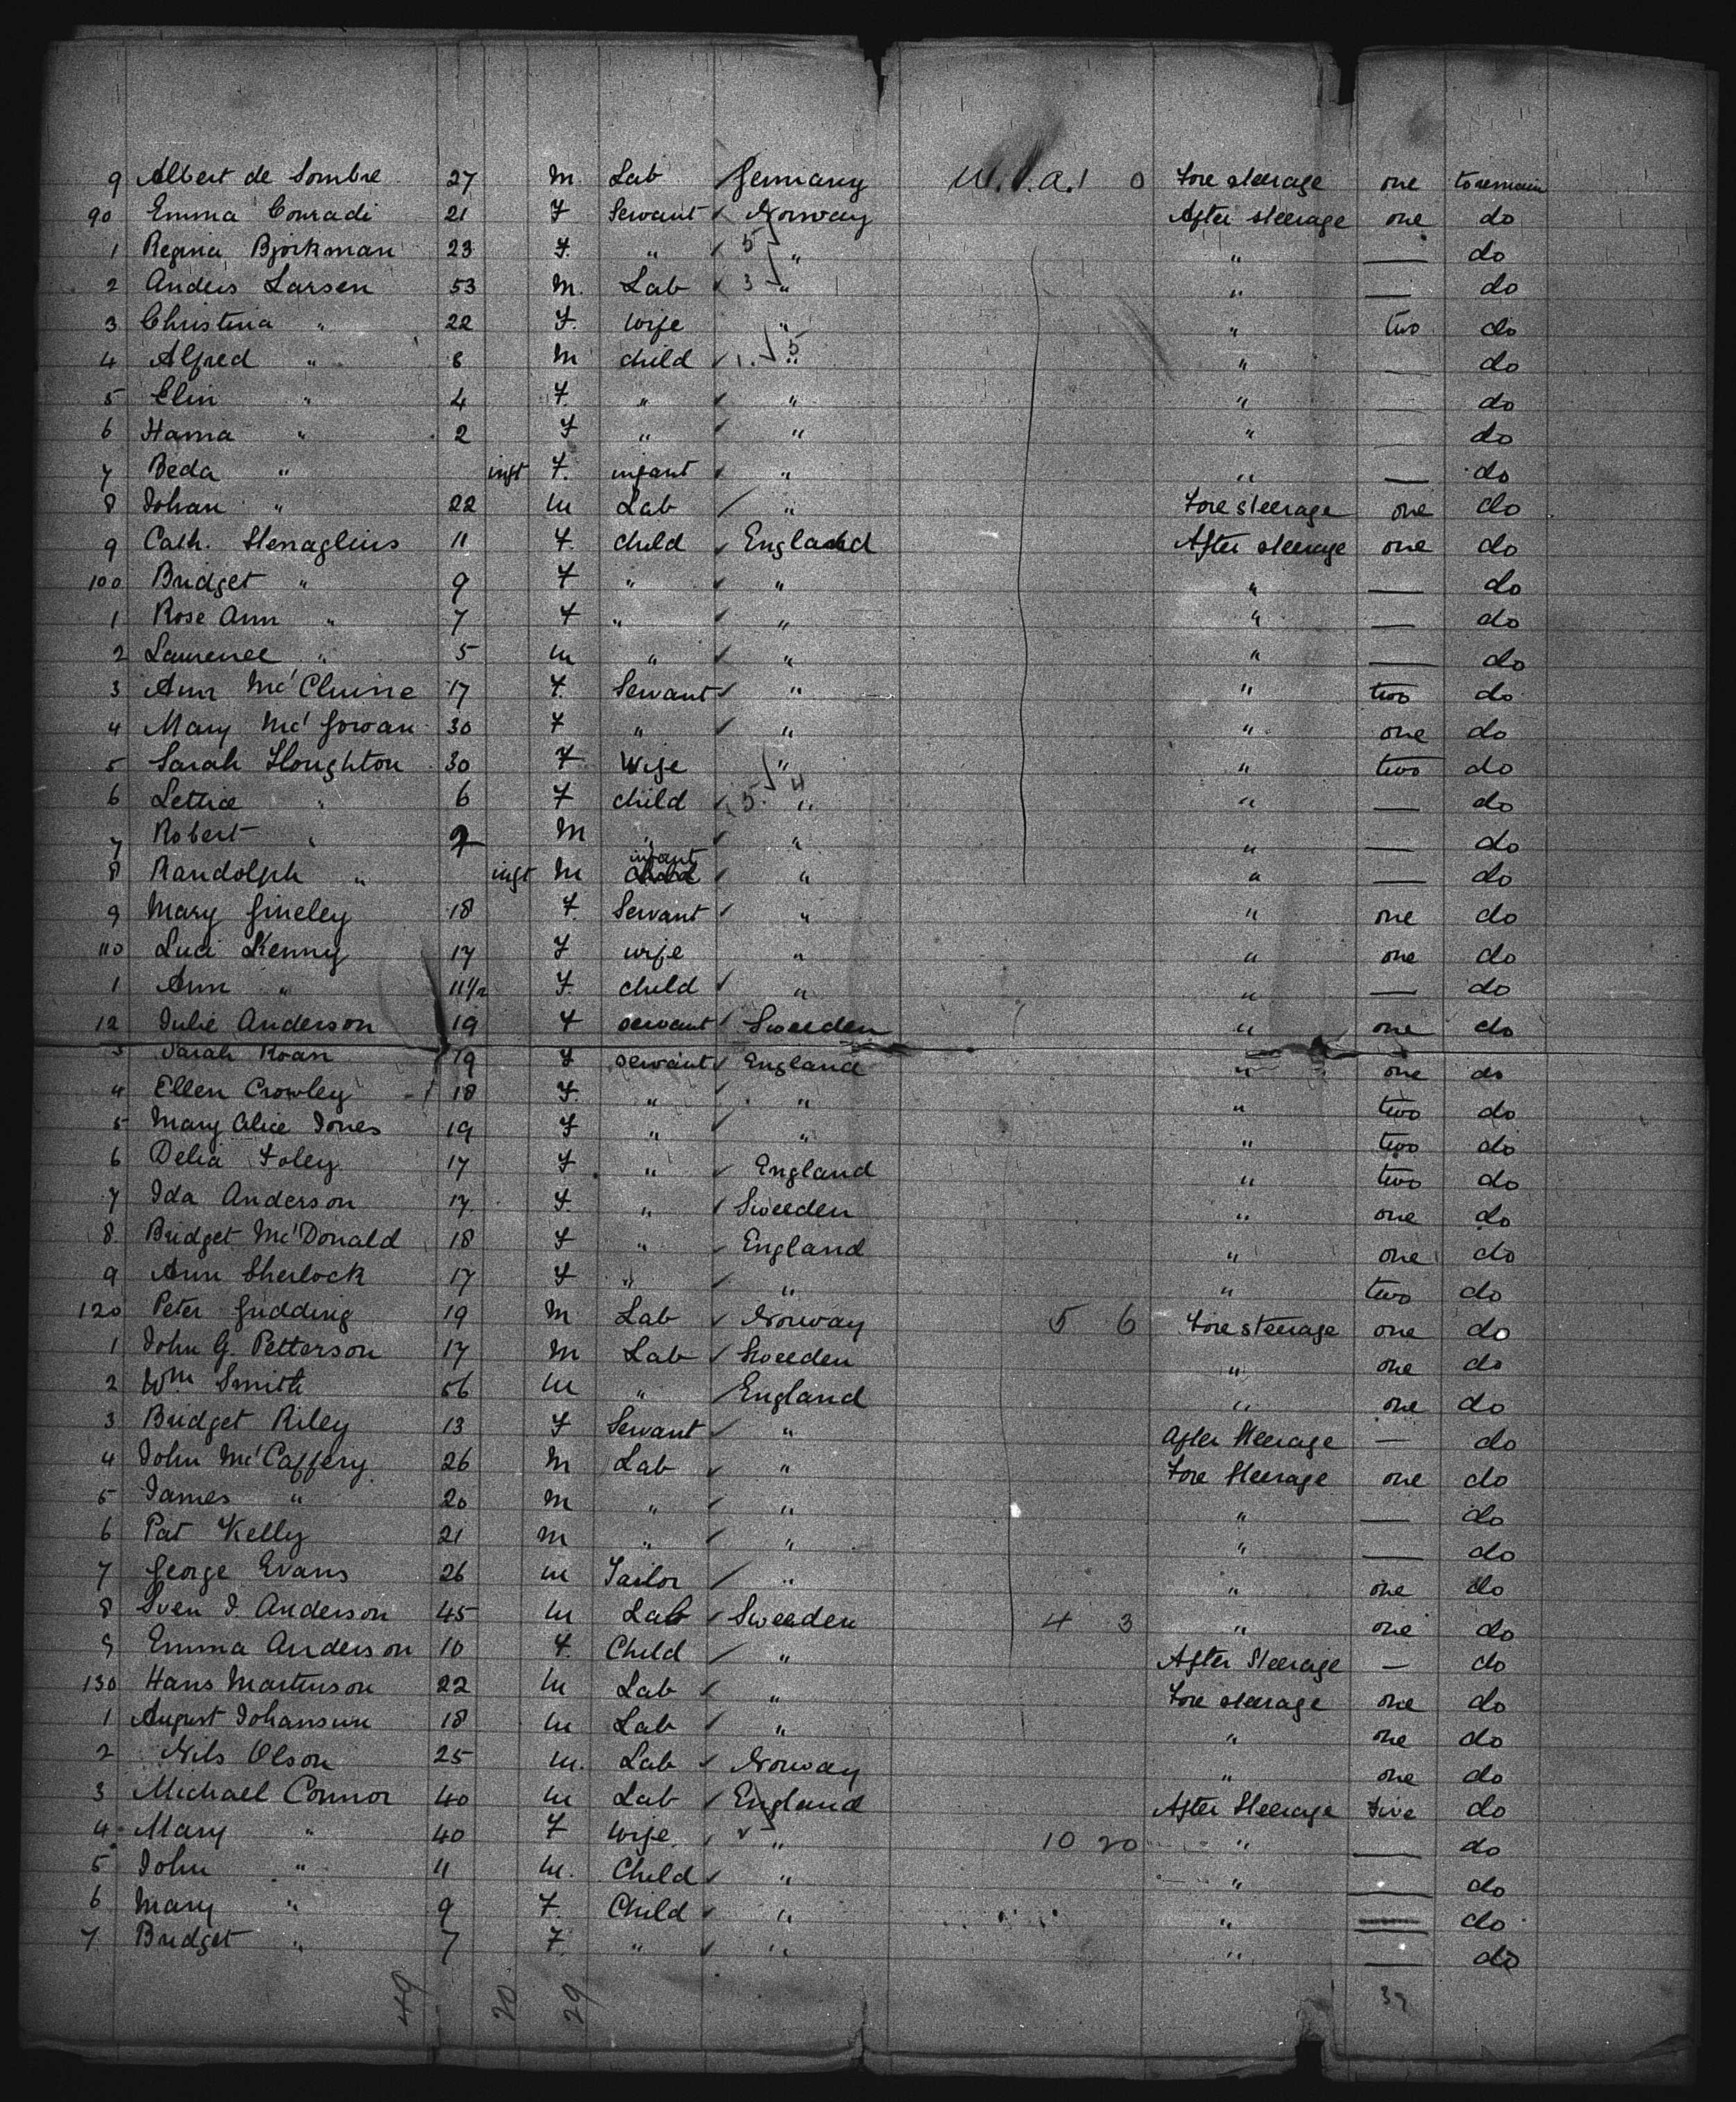 9 Albert de Sombre 27 M Lab Germany U.S.A. 1 0 Fore steerage one to remain
90 Emma Conradi 21 F Servant Norway After steerage one do
1 Regina Bjorkman 23 F. " 5 " " — do
2 Anders Larsen 53 M. Lab 3 " " — do
3 Christina " 22 F. Wife " " two do
4 Alfred " 8 M child 1. 5 " " — do
5 Elin " 4 F. " " " — do
6 Hanna " 2 F " " " — do
7 Beda " inft F. infant " " — do
8 Johan " 22 M Lab " Fore steerage one do
9 Cath. 11 F. child England After steerage one do
100 Bridget " 9 F " " " — do
1 Rose Ann " 7 F " " " — do
2 Laurence " 5 M " " " — do
3 Ann 17 F. Servant " " two do
4 Mary Mc'Gowan 30 F " " " one do
5 Sarah Houghton 30 F Wife " " two do
6 Lettice " 6 F child 5. 4 " " — do
7 Robert " 2 M " " " — do
8 Randolph " inft M infant child " " — do
9 Mary Gineley 18 F. Servant " " one do
110 Luci Kenny 17 F wife " " one do
1 Ann " 11½ F. child " " — do
12 Julie Anderson 19 F servant Sweeden " one do
3 Sarah Roan 19 F servant England " one do
4 Ellen Crowley 18 F. " " " two do
5 Mary Alice Jones 19 F " " " two do
6 Delia Foley 17 F. " England " two do
7 Ida Anderson 17. F. " Sweeden " one do
8. Bridget Mc'Donald 18 F " England " one do
9 Ann Sherlock 17 F " " " two do
120 Peter Gudding 19 M Lab Norway 5 6 Fore steerage one do
1 John G. Petterson 17 M Lab Sweeden " one do
2 Wm Smith 56 M " England " one do
3 Bridget Riley 13 F Servant " After Steerage — do
4 John Mc'Caffery 26 M Lab " Fore Steerage one do
5 James " 20 M " " " — do
6 Pat Kelly 21 M " " " — do
7 George Evans 26 M Tailor " " one do
8 Sven J. Anderson 45 M Lab Sweeden 4 3 " one do
9 Emma Anderson 10 F. Child " After Steerage — do
130 Hans Martenson 22 M Lab " Fore steerage one do
1 August Johanson 18 M Lab " " one do
2 Nils Olson 25 M. Lab Norway " one do
3 Michael Connor 40 M Lab England After Steerage five do
4 Mary " 40 F Wife. " 10 20 " — do
5 John " 11 M. Child " " — do
6 Mary " 9 F. Child " " — do
7 Bridget " 7 F. " " " — do
49 20 29 39